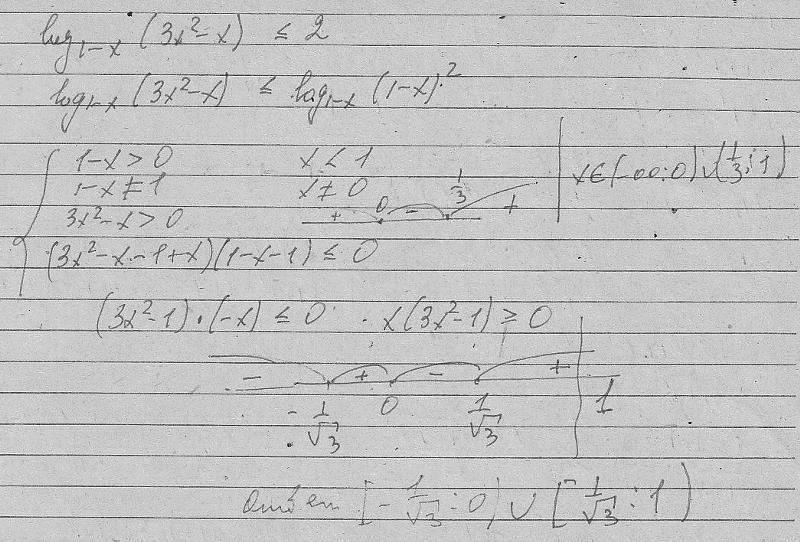 log₁₋ₓ (3x²-x) ≤ 2
log₁₋ₓ (3x²-x) ≤ log₁₋ₓ (1-x)²
1-x>0 x<1
1-x≠1 x≠0
3x²-x>0 + 0 - 1/3 + x∈(-∞;0)∪(1/3;1)
(3x²-x-1+x)(1-x-1) ≤ 0
(3x²-1)·(-x) ≤ 0 x(3x²-1) ≥ 0
- + - +
-1/√3 0 1/√3 1
Ответ [-1/√3;0)∪[1/√3;1)